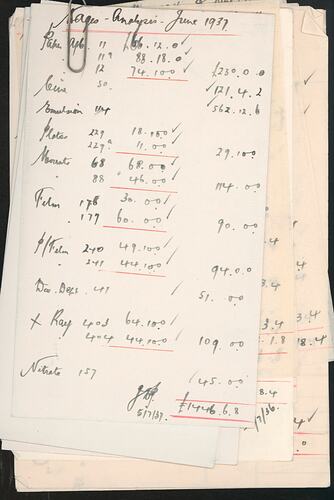 Wages - Analysis - June 1937
Paper Dep. 11 £66.12.0 ✓
11a 88.18.0 ✓
12 74.10.0 ✓ £230.0.0
Cine 50. ✓ 121.4.2
Emulsion 114 ✓ 562.12.6
Plates 229 18.10.0 ✓
229a 11.00 ✓ 29.10.0
Mounts 68 68.00 ✓
88 46.00 ✓ 114.00
Film 178 30.00 ✓
179 60.00 ✓ 90.00
P/Film 240 49.10.0 ✓
241 44.10.0 ✓ 94.0.0
Dev. Deps. 41 ✓ 51.00
X Ray 403 64.10.0 ✓
404 44.10.0 ✓ 109.00
Nitrate 157 45.00
5/7/37. £1446.6.8
3.4
3.4
1.8
18.4
8.4
7/36.